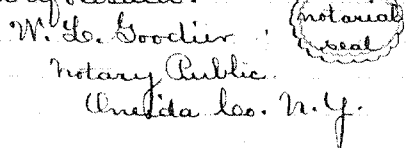 W. L. Goodier.
notarial
seal
Notary Public
Oneida Co. N.Y.